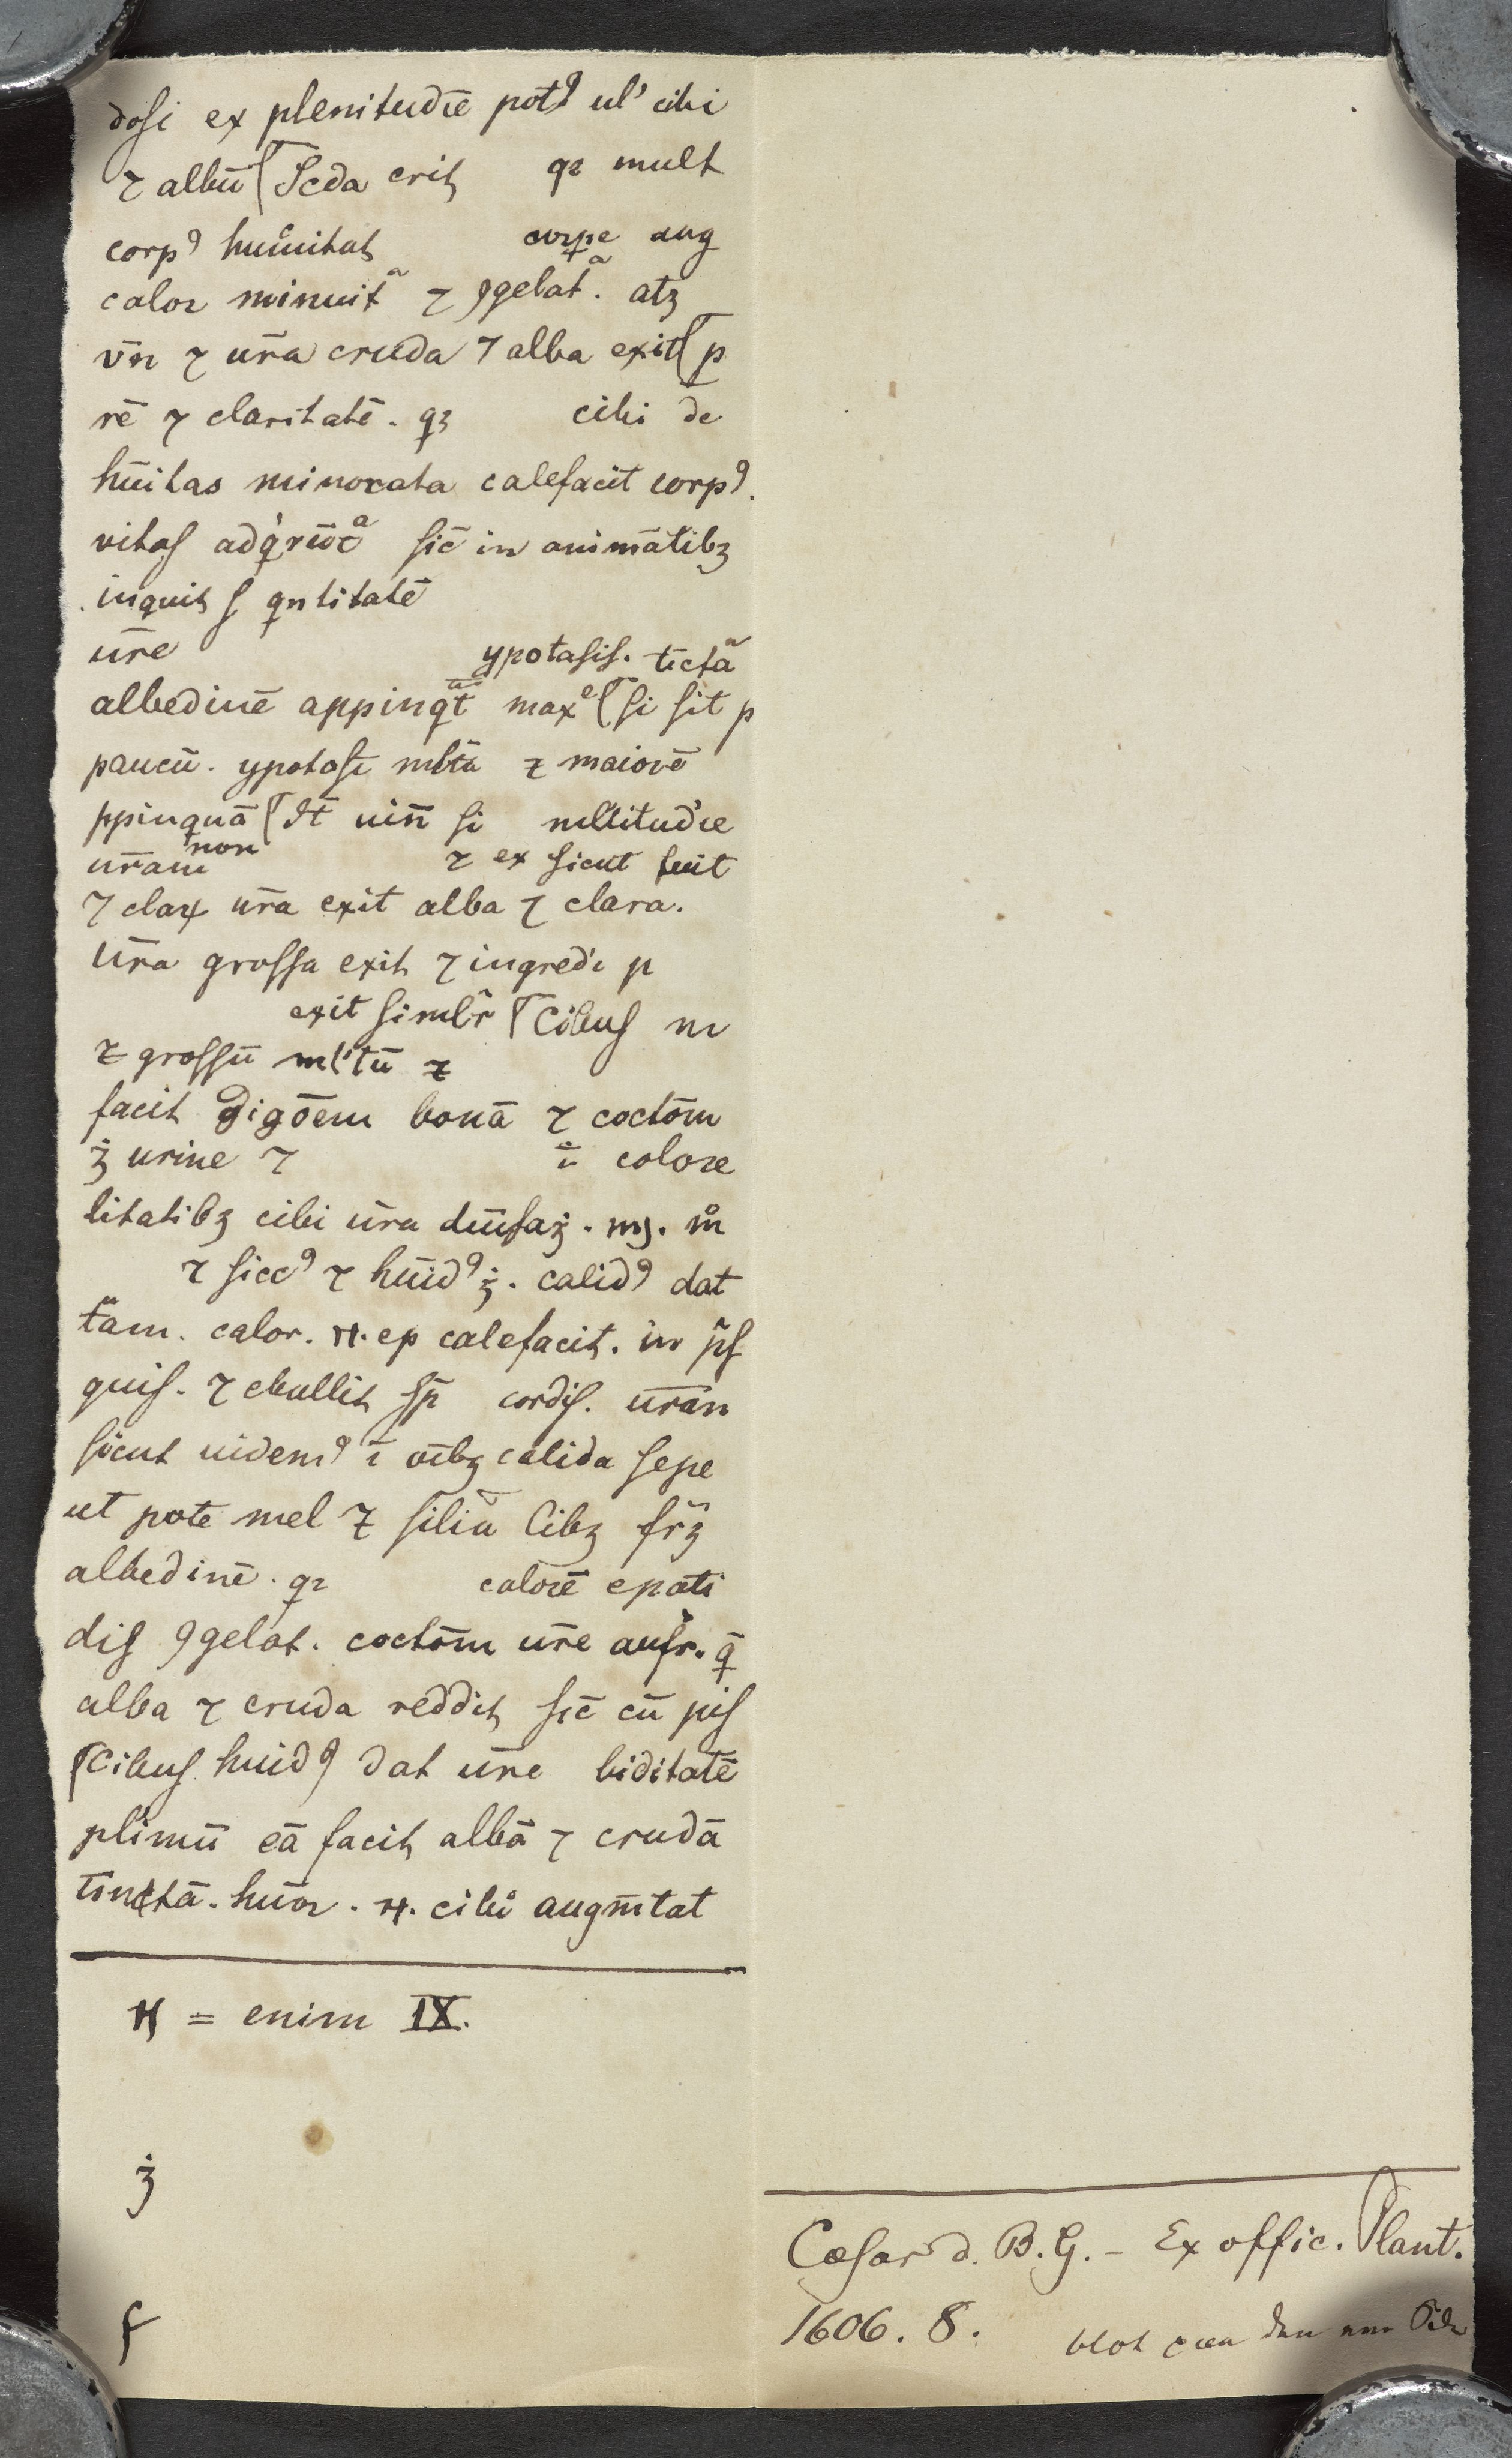 dosi ex plenitudīe potꝰ ul' cibi
⁊ albū ⸿ Scda erit qꝛ mult
corpꝰ humitat corpe aug
calor minuit ⁊ ꝯgelat. atꝫ
v̄n ⁊ ur̄a cruda ⁊ alba exit ⸿ p
rē ⁊ claritatē. qꝫ cibi de
hūitas minorata calefacit corpꝰ.
vitas sic̄ in animātibꝫ
inquit s qntitatē
ūre ypotasis. tīcta
albedinē appinqt max ⸿ si sit p
paucū. ypotasī mltā ⁊ maiorē
ppinquā ⸿ It̄ uin̄ si mltitudīe
uram non ⁊ ex sicut fuit
⁊ claꝝ ur̄a exit alba ⁊ clara.
Ur̄a grossa exit ⁊ ingredi p
exit similr̄ ⸿ Cibus m
⁊ grossū ml'tū ⁊
facit digōem bonā ⁊ coctōm
ꝫ urine ⁊ ī colore
litatibꝫ cibi ur̄a
⁊ siccꝰ ⁊ hūidꝰ ꝫ. calidꝰ dat
tam. calor. ep calefacit. in
quis. ⁊ ebullit sp̄ cordis. ur̄an
sicut uidemꝰ ī calida sepe
ut pote mel ⁊ silia cibꝫ frꝫ
albedinē. qꝛ calorē epati
dis ꝯgelat. coctōm ur̄e aufr. q̄
alba ⁊ cruda reddit sic̄ cū pis
⸿ Cibus huidꝰ dat ur̄e biditatē
plimū eā facit albā ⁊ crudā
tinctā. hūor. cibi augm̄tat
= enim IX.
ꝫ
Cæsar d. B. G. – Ex offic. Plant.
1606. 8.